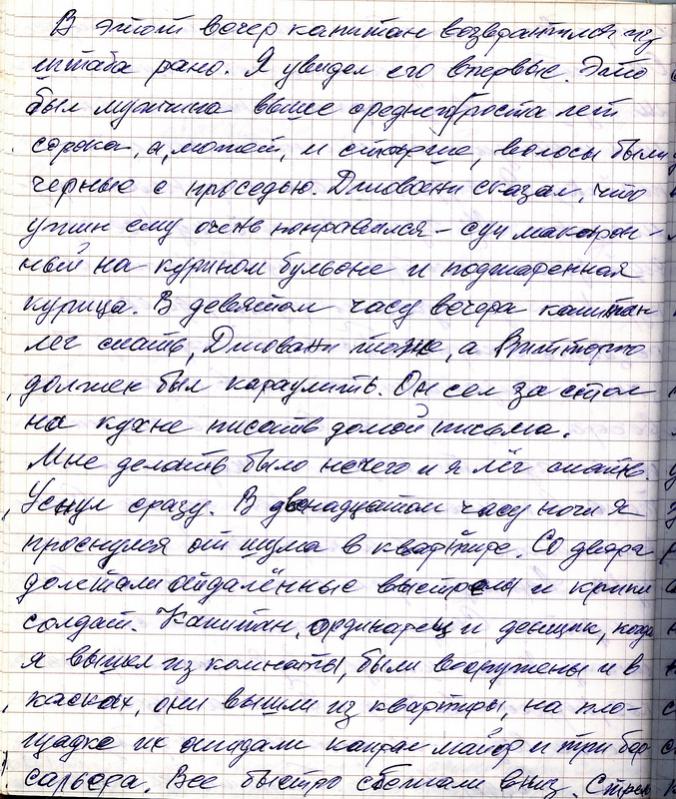 В этот вечер капитан возвратился из
штаба рано. Я увидел его впервые. Это
был мужчина выше среднего роста лет
сорока, а, может, и старше, волосы были
черные с проседью. Джовани сказал, что
ужин ему очень понравился – суп макарон-
ный на курином бульоне и поджаренная
курица. В девятом часу вечера капитан
лег спать, Джовани тоже, а Витторио
должен был караулить. Он сел за стол
на кухне писать домой письма.
Мне делать было нечего и я лёг спать.
Уснул сразу. В двенадцатом часу ночи я
проснулся от шума в квартире. Со двора
долетали отдалённые выстрелы и крики
солдат. Капитан, ординарец и денщик, когда
я вышел из комнаты, были вооружены и в
касках, они вышли из квартиры, на пло-
щадке их ожидали капрал майор и три бер
сальера. Все быстро сбежали вниз. Стрел